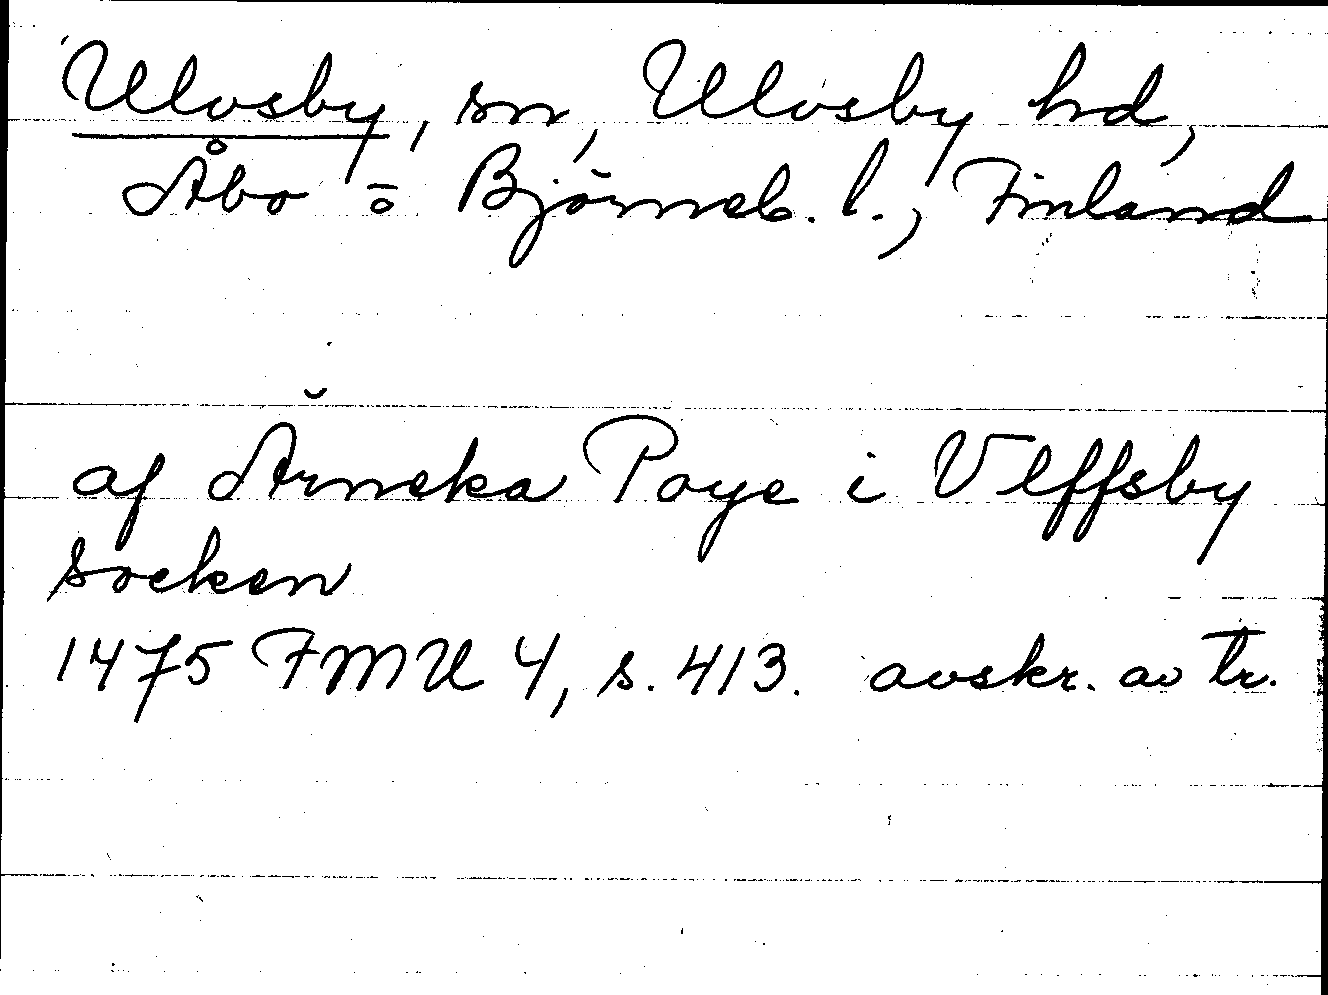 Ulvsby, sn, Ulvsby hd,
Åbo o Björneb. l., Finland
af Ărneka Poye i Vlffsby
socken
1475 FMU 4, s. 413. avskr. av tr.